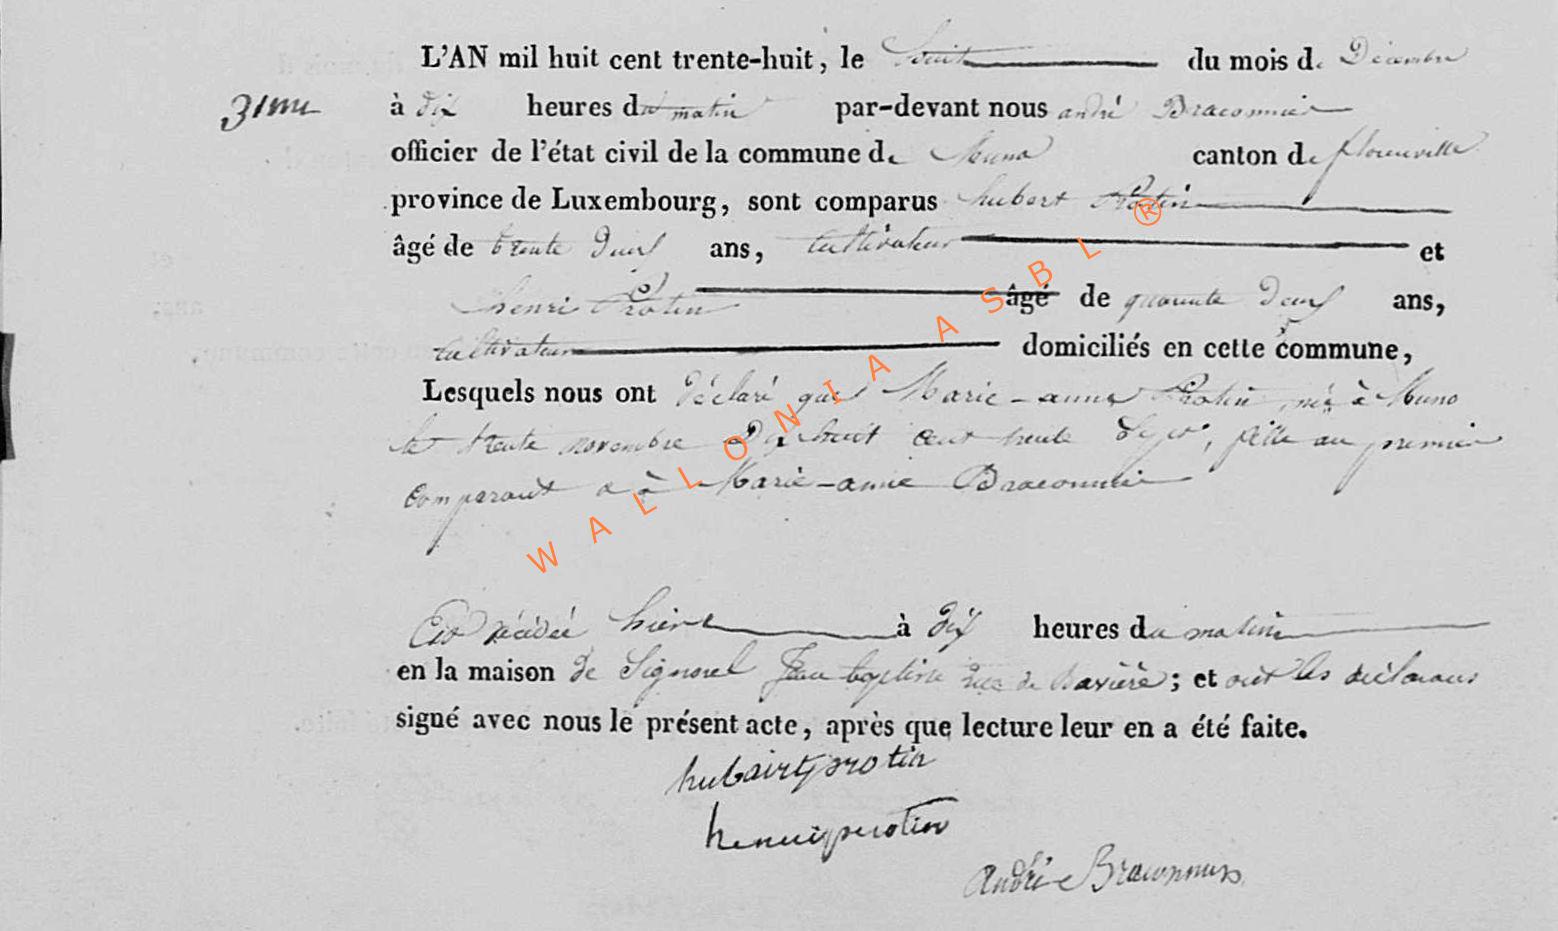 L'AN mil huit cent trente-huit, le huit du mois de Décembre
31me à dix heures du matin par-devant nous andré Braconnier
officier de l'état civil de la commune de Muno canton de florenville
province de Luxembourg, sont comparus hubert Protin
âgé de trente deux ans, Cultivateur et
henri Protin âgé de quarante deux ans,
Cultivateur domiciliés en cette commune,
Lesquels nous ont déclaré que Marie-anne Protin, née à Muno
le trente novembre Dix huit cent trente Sept, fille au premier
comparant et à Marie-anne Braconnier
Est décédée hier à dix heures du matin
en la maison de Signorel Jean baptiste rue de Bavière; et ont les déclarans
signé avec nous le présent acte, après que lecture leur en a été faite.
hubairt protin
henri protin
André Braconnier
WALLONIA ASBL ®